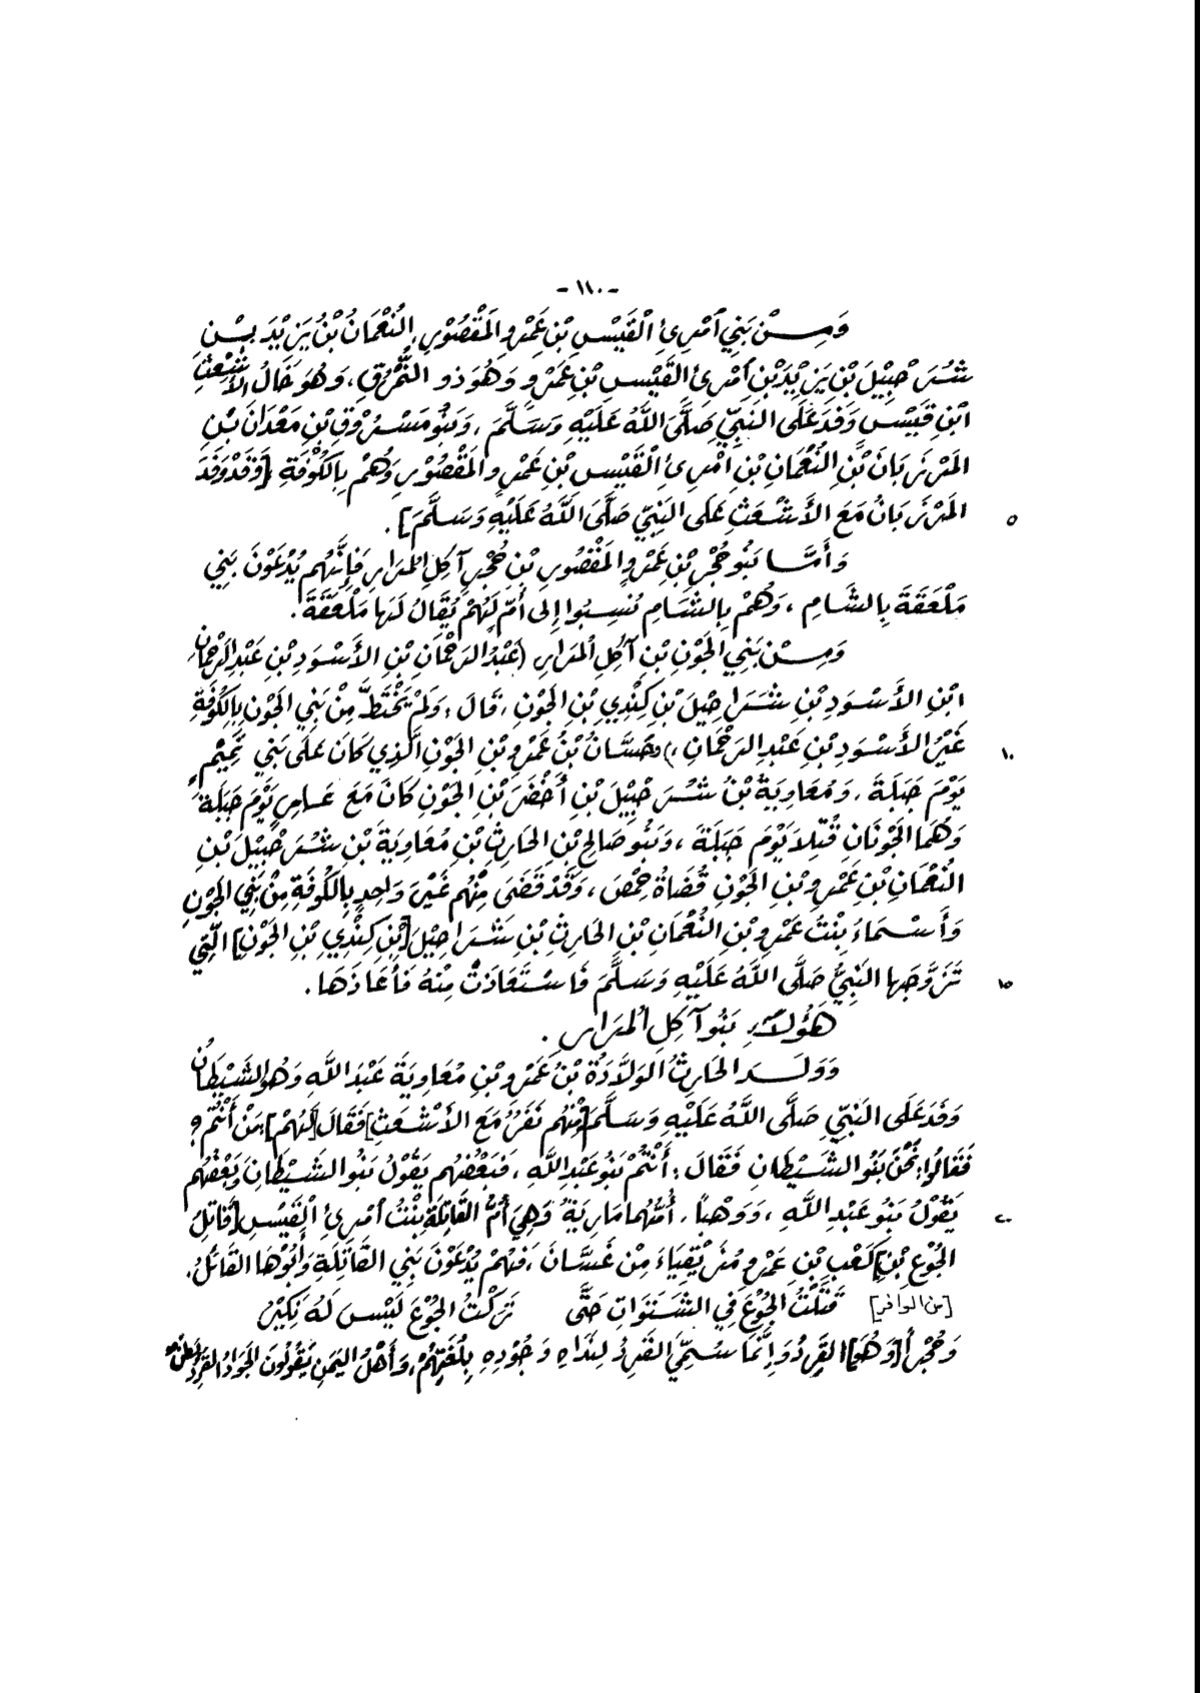 - ١١٠ -
وَمِــنْ بَنِي آمْرِئِ الْقَيْسِ بْنِ عَمْرٍو الْمَقْصُوْرِ، النُعْمَانُ بْنُ يَزِيْدَ بــْنِ
شُرَحْبِيْلَ بْنِ يَزِيْدَ بْنِ آمْرِئِ القَيْسِ بْنِ عَمْرٍو وَهُوَ ذو النُّمْرُقِ، وَهُوَ خَالُ الأَشْعَثِ
ابْنِ قَيْسٍ وَفَدَ عَلَى النَبِيِّ صَلَّى اللَّهُ عَلَيْهِ وَسَلَّمَ، وَبَنُو مَسْرُوْقِ بْنِ مَعْدَانَ بْنِ
المَرْزَبَانَ بْنِ النُعْمَانِ بْنِ امْرِئِ الْقَيْسِ بْنِ عَمْرٍو المَقْصُوْرِ وَهُمْ بِالكُوْفَةِ [وَقَدْ وَفَدَ
المَرْزَبَانُ مَعَ الأَشْعَثِ عَلى النَبِيِّ صَلَّى اللَّهُ عَلَيْهِ وَسَلَّمَ]. ٥
وَأَمَّــا بَنُو حُجْرِ بْنِ عَمْرٍو المَقْصُورِ بْنِ حُجْرٍ آكِلِ المُرَارِ فَإِنَّهُم يُدْعَوْنَ بَنِي
مَلْعَقَةَ بِالشَامِ، وَهُمْ بِالشَامِ نُسِبُوا إِلى أُمٍّ لَهُمْ يُقَالُ لَهَا مَلْعَقَةَ.
وَمِــنْ بَنِي الجَوْنِ بْنِ آكِلِ المُرَارِ (عَبْدُ الرَحْمَانِ بْنِ الأَسْوَدِ بْنِ عَبْدِ الرَحْمَانِ
ابْنِ الأَسْوَدِ بْنِ شَرَاحِيْلَ بْنِ كِنْدِيِ بْنِ الجَوْنِ، قَالَ: وَلَمْ يَخْتَطَّ مِنْ بَنِي الجَوْنِ بِالكُوْفَةِ
غَيْرُ الأَسْوَدِ بْنِ عَبْدِ الرَحْمَانِ،) وَحَسَّانُ بْنُ عَمْرِو بْنِ الجَوْنِ الَّذِي كَانَ عَلَى بَنِي تَمِيْمٍ ١٠
يَوْمَ جَبَلَةَ، وَمُعَاوِيَةُ بْنُ شُرَحْبِيْلَ بْنِ أَخْضَرَ بْنِ الجَوْنِ كَانَ مَعَ عَامِرٍ يَوْمَ جَبَلَةَ
وَهُمَا الجَوْنَانِ قُتِلَا يَوْمَ جَبَلَةَ، وَبَنُو صَالِحِ بْنِ الحَارِثِ بْنِ مُعَاوِيَةَ بْنِ شُرَحْبِيْلَ بْنِ
النُعْمَانِ بْنِ عَمْرِو بْنِ الجَوْنِ قُضَاةُ حِمْصَ، وَقَدْ قَضَى مِنْهُم غَيْرُ وَاحِدٍ بِالكُوفَةِ مِنْ بَنِي الجَوْنِ
وَأَسْمَاءُ بِنْتُ عَمْرِو بْنِ النُعْمَانِ بْنِ الحَارِثِ بْنِ شَرَاحِيْلَ [بْنِ كِنْدِيِ بْنِ الجَوْنِ] الَّتِي
تَزَوَّجَهَا النَبِيُّ صَلَّى اللَّهُ عَلَيْهِ وَسَلَّمَ فَاسْتَعَاذَتْ مِنْهُ فَأَعَاذَهَا. ١٥
هَؤُلاَءِ بَنُو آكِلِ المُرَارِ.
وَوَلَــدَ الحَارِثُ الوَلاَّدَةُ بْنُ عَمْرِو بْنِ مُعَاوِيَةَ عَبْدَ اللَّهِ وَهُوَ الشَيْطَانُ
وَفَدَ عَلَى النَبِيِّ صَلَّى اللَّهُ عَلَيْهِ وَسَلَّمَ [مِنْهُم نَفَرٌ مَعَ الأَشْعَثِ] فَقَالَ [لَهُمْ] مَنْ أَنْتُم؟
فَقَالُوا: نَحْنُ بَنُو الشَيْطَانِ فَقَالَ: أَنْتُمْ بَنُو عَبْدِ اللَّهِ، فَبَعْضُهُم يَقُوْلُ بَنُو الشَيْطَانِ وَبَعْضُهُم
يَقُوْلُ بَنُو عَبْدِ اللَّهِ، وَوَهْبَاً، أُمُّهُمَا مَارِيَةُ وَهِيَ أُمُّ القَاتِلَةِ بِنْتُ آمْرِئِ القَيْسِ [قَاتِلِ ٢٠
الجُوْعِ بْنِ] كَعْبِ بْنِ عَمْرٍو مُزَيْقِيَاءَ مِنْ غَسَّانَ، فَهُمْ يُدْعَوْنَ بَنِي القَاتِلَةِ وَأَبُوْهَا القَائِلُ:
[من الوافر] قَتَلْتُ الجُوْعَ فِي الشَتَوَاتِ حَتَّى تَرَكْتُ الجُوْعَ لَيْسَ لَهُ نَكِيْرُ
وَحُجْراً [وَهُوَ] القَرِدُ وَإِنَّمَا سُمِّيَ القَرِدُ لِنَدَاهِ وَجُوْدِهِ بِلُغَتِهُمْ، وَأَهْلُ اليَمَنِ يَقُوْلُونَ الجَوَادُ القَرِدُ